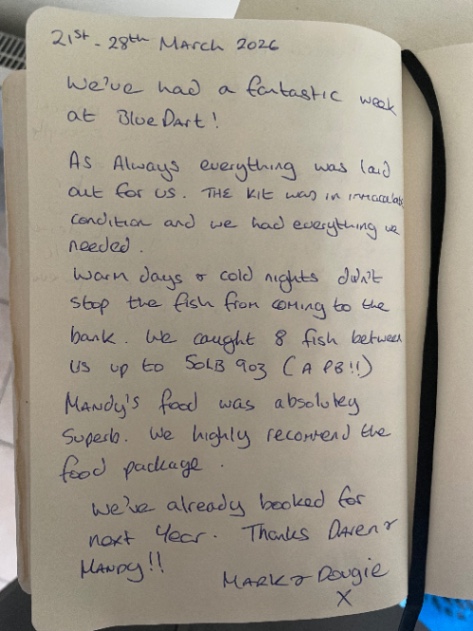 21st - 28th March 2026
We've had a fantastic week
at Blue Dart!
As Always everything was laid
out for us. THE Kit was in immaculate
condition and we had everything we
needed.
Warm days & cold nights didn't
stop the fish from coming to the
bank. We caught 8 fish between
us up to 50LB 9oz (A PB!!)
Mandy's food was absolutey
Superb. We highly recommend the
food package.
We've already booked for
next year. Thanks Daren &
Mandy!!
Mark & Dougie
X